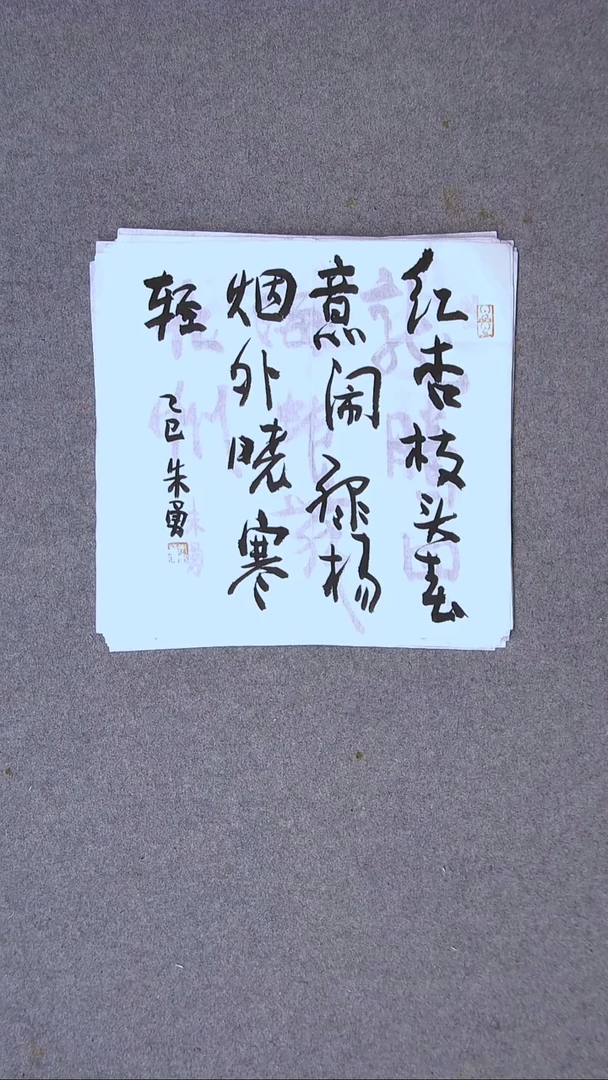 红杏枝头春
意闹绿杨
烟外晓寒
轻
乙巳 朱勇